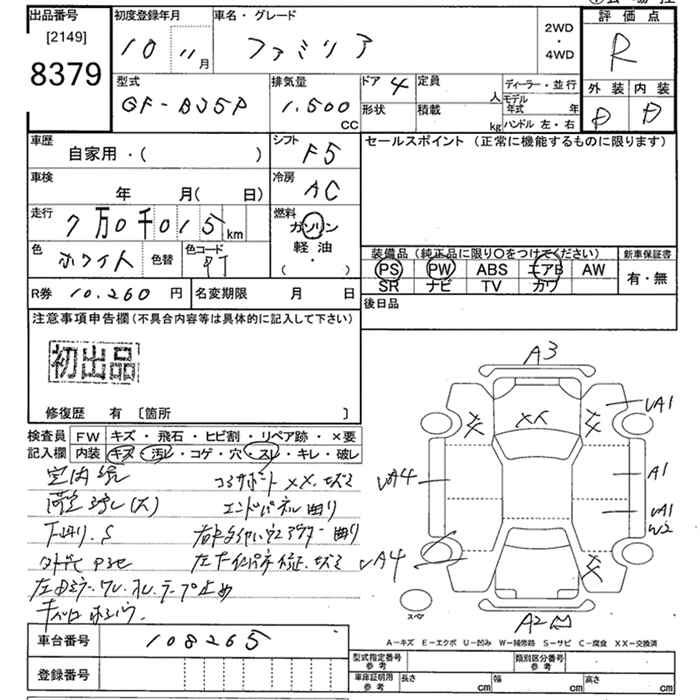 出品番号
[2149]
8379
初度登録年月
10 11 月
車名・グレード
ファミリア
2WD
・
4WD
評価点
R
外装 内装
D D
型式
GF-BJ5P
排気量
1,500
CC
ドア 4
形状
定員 人
積載 kg
ディーラー・並行
モデル年式 年
ハンドル 左・右
車歴
自家用・( )
シフト
F5
車検
年 月( 日)
冷房
AC
走行
7万0千015 km
燃料
ガソリン
軽油
( ・ )
色
ホワイト
色替
色コード
R券 10,260 円
名変期限 月 日
セールスポイント (正常に機能するものに限ります)
装備品 (純正品に限り○をつけてください)
PS PW ABS エアB AW
SR ナビ TV カワ
新車保証書
有・無
後日品
注意事項申告欄 (不具合内容等は具体的に記入して下さい)
初出品
修復歴 有 〔箇所 〕
検査員
記入欄
FW キズ・飛石・ヒビ割・リペア跡・×要
内装 キズ・汚レ・コゲ・穴・スレ・キレ・破レ
コアサポート XX.キズミ
エンドパネル曲り
A3
XX
UA1
A1
UA1
W2
UA4
UA4
A2
スペア
A－キズ E－エクボ U－凹み W－補修跡 S－サビ C－腐食 XX－交換済
車台番号 108265
登録番号
型式指定番号
参考
類別区分番号
参考
車庫証明用
参考
長さ cm
幅 cm
高さ cm